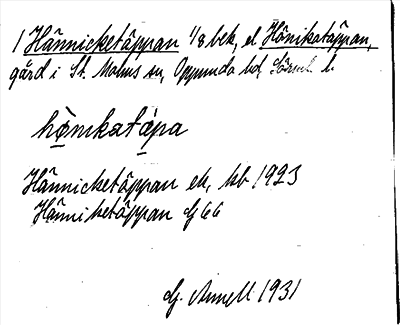 1 Hännicketäppan 1/8 bek, el Hänikatäppan,
gård i St. Malms sn, Oppunda hd, Sörml. l.
hönikatäpa
Hännicketäppan ek, kb 1923
Hänniketäppan dj 66
dj. Annell 1931